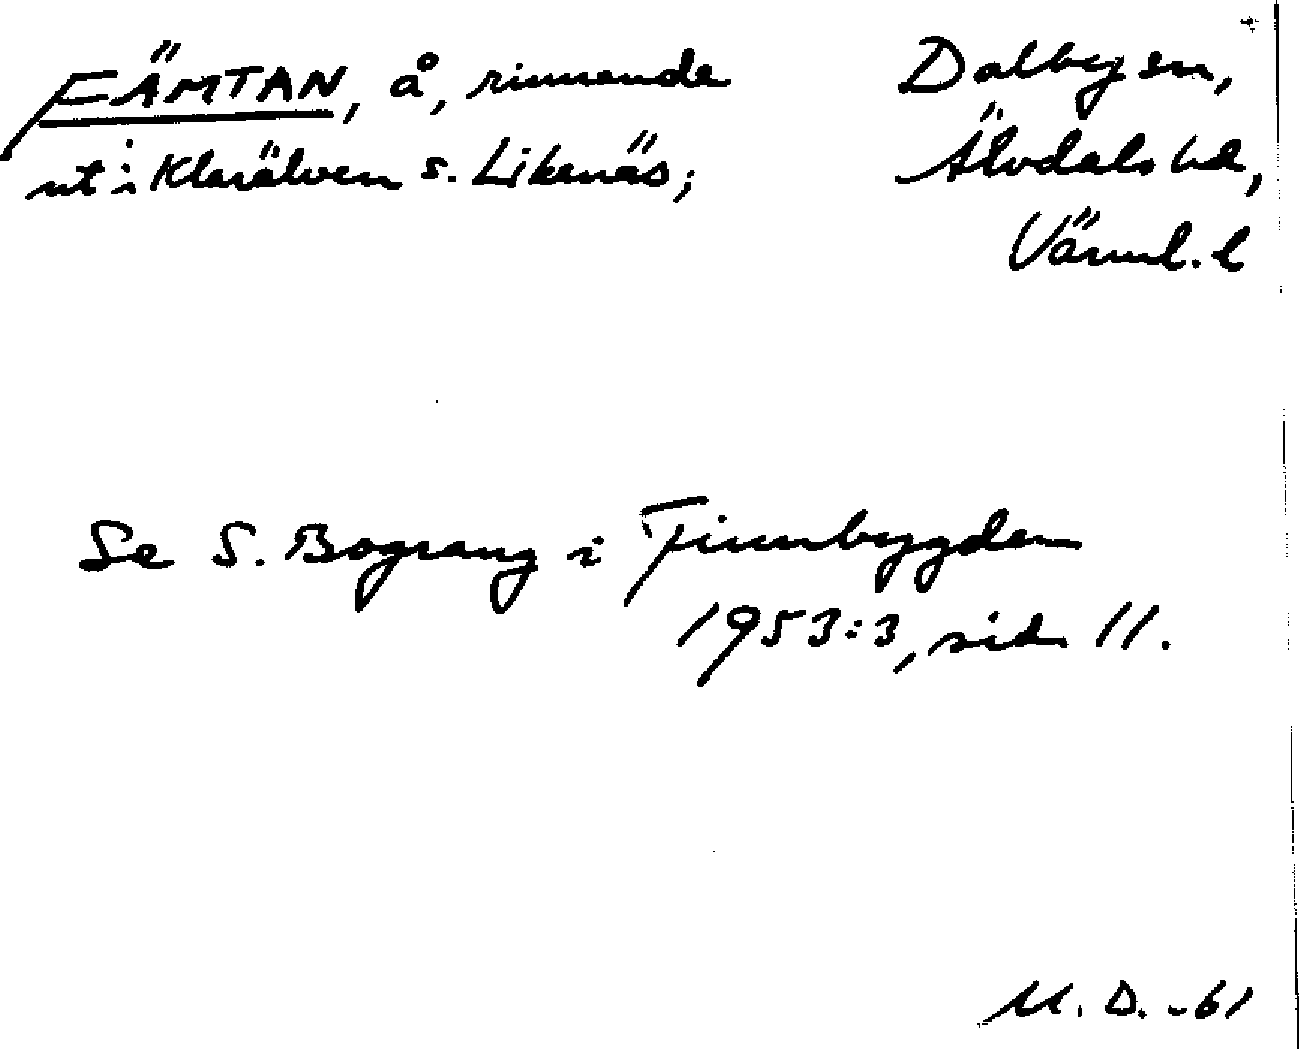 FÄMTAN, å, rinnande
ut i Klarälven s. Likenäs;
Dalby sn,
Älvdals hd,
Värml. l
Se S. Bograng i Finnbygden
1953:3, sid. 11.
M. D. -61